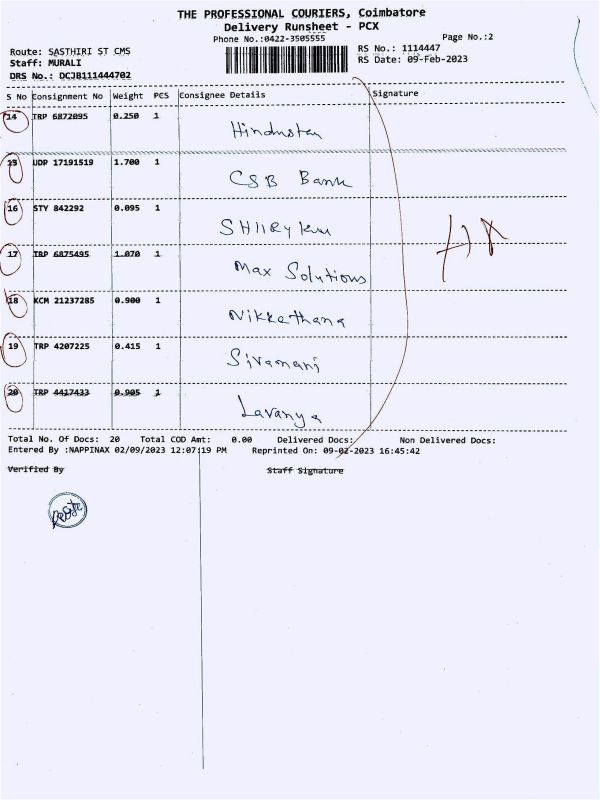 THE PROFESSIONAL COURIERS, Coimbatore
Delivery Runsheet - PCX
Phone No.:0422-3505555
Page No.:2
Route: SASTHIRI ST CMS
RS No.: 1114447
Staff: MURALI
RS Date: 09-Feb-2023
DRS No.: DCJB111444702
S No Consignment No Weight PCS Consignee Details Signature
14 TRP 6872095 0.250 1
Hindustan
15 UDP 17191519 1.700 1
CSB Bank
16 STY 842292 0.095 1
17 TRP 6875495 1.070 1
Max Solutions
18 KCM 21237285 0.900 1
Nikkethana
19 TRP 4207225 0.415 1
Sivamani
20 TRP 4417433 0.905 1
Lavanya
Total No. Of Docs: 20 Total COD Amt: 0.00 Delivered Docs: Non Delivered Docs:
Entered By :NAPPINAX 02/09/2023 12:07:19 PM Reprinted On: 09-02-2023 16:45:42
Verified By Staff Signature